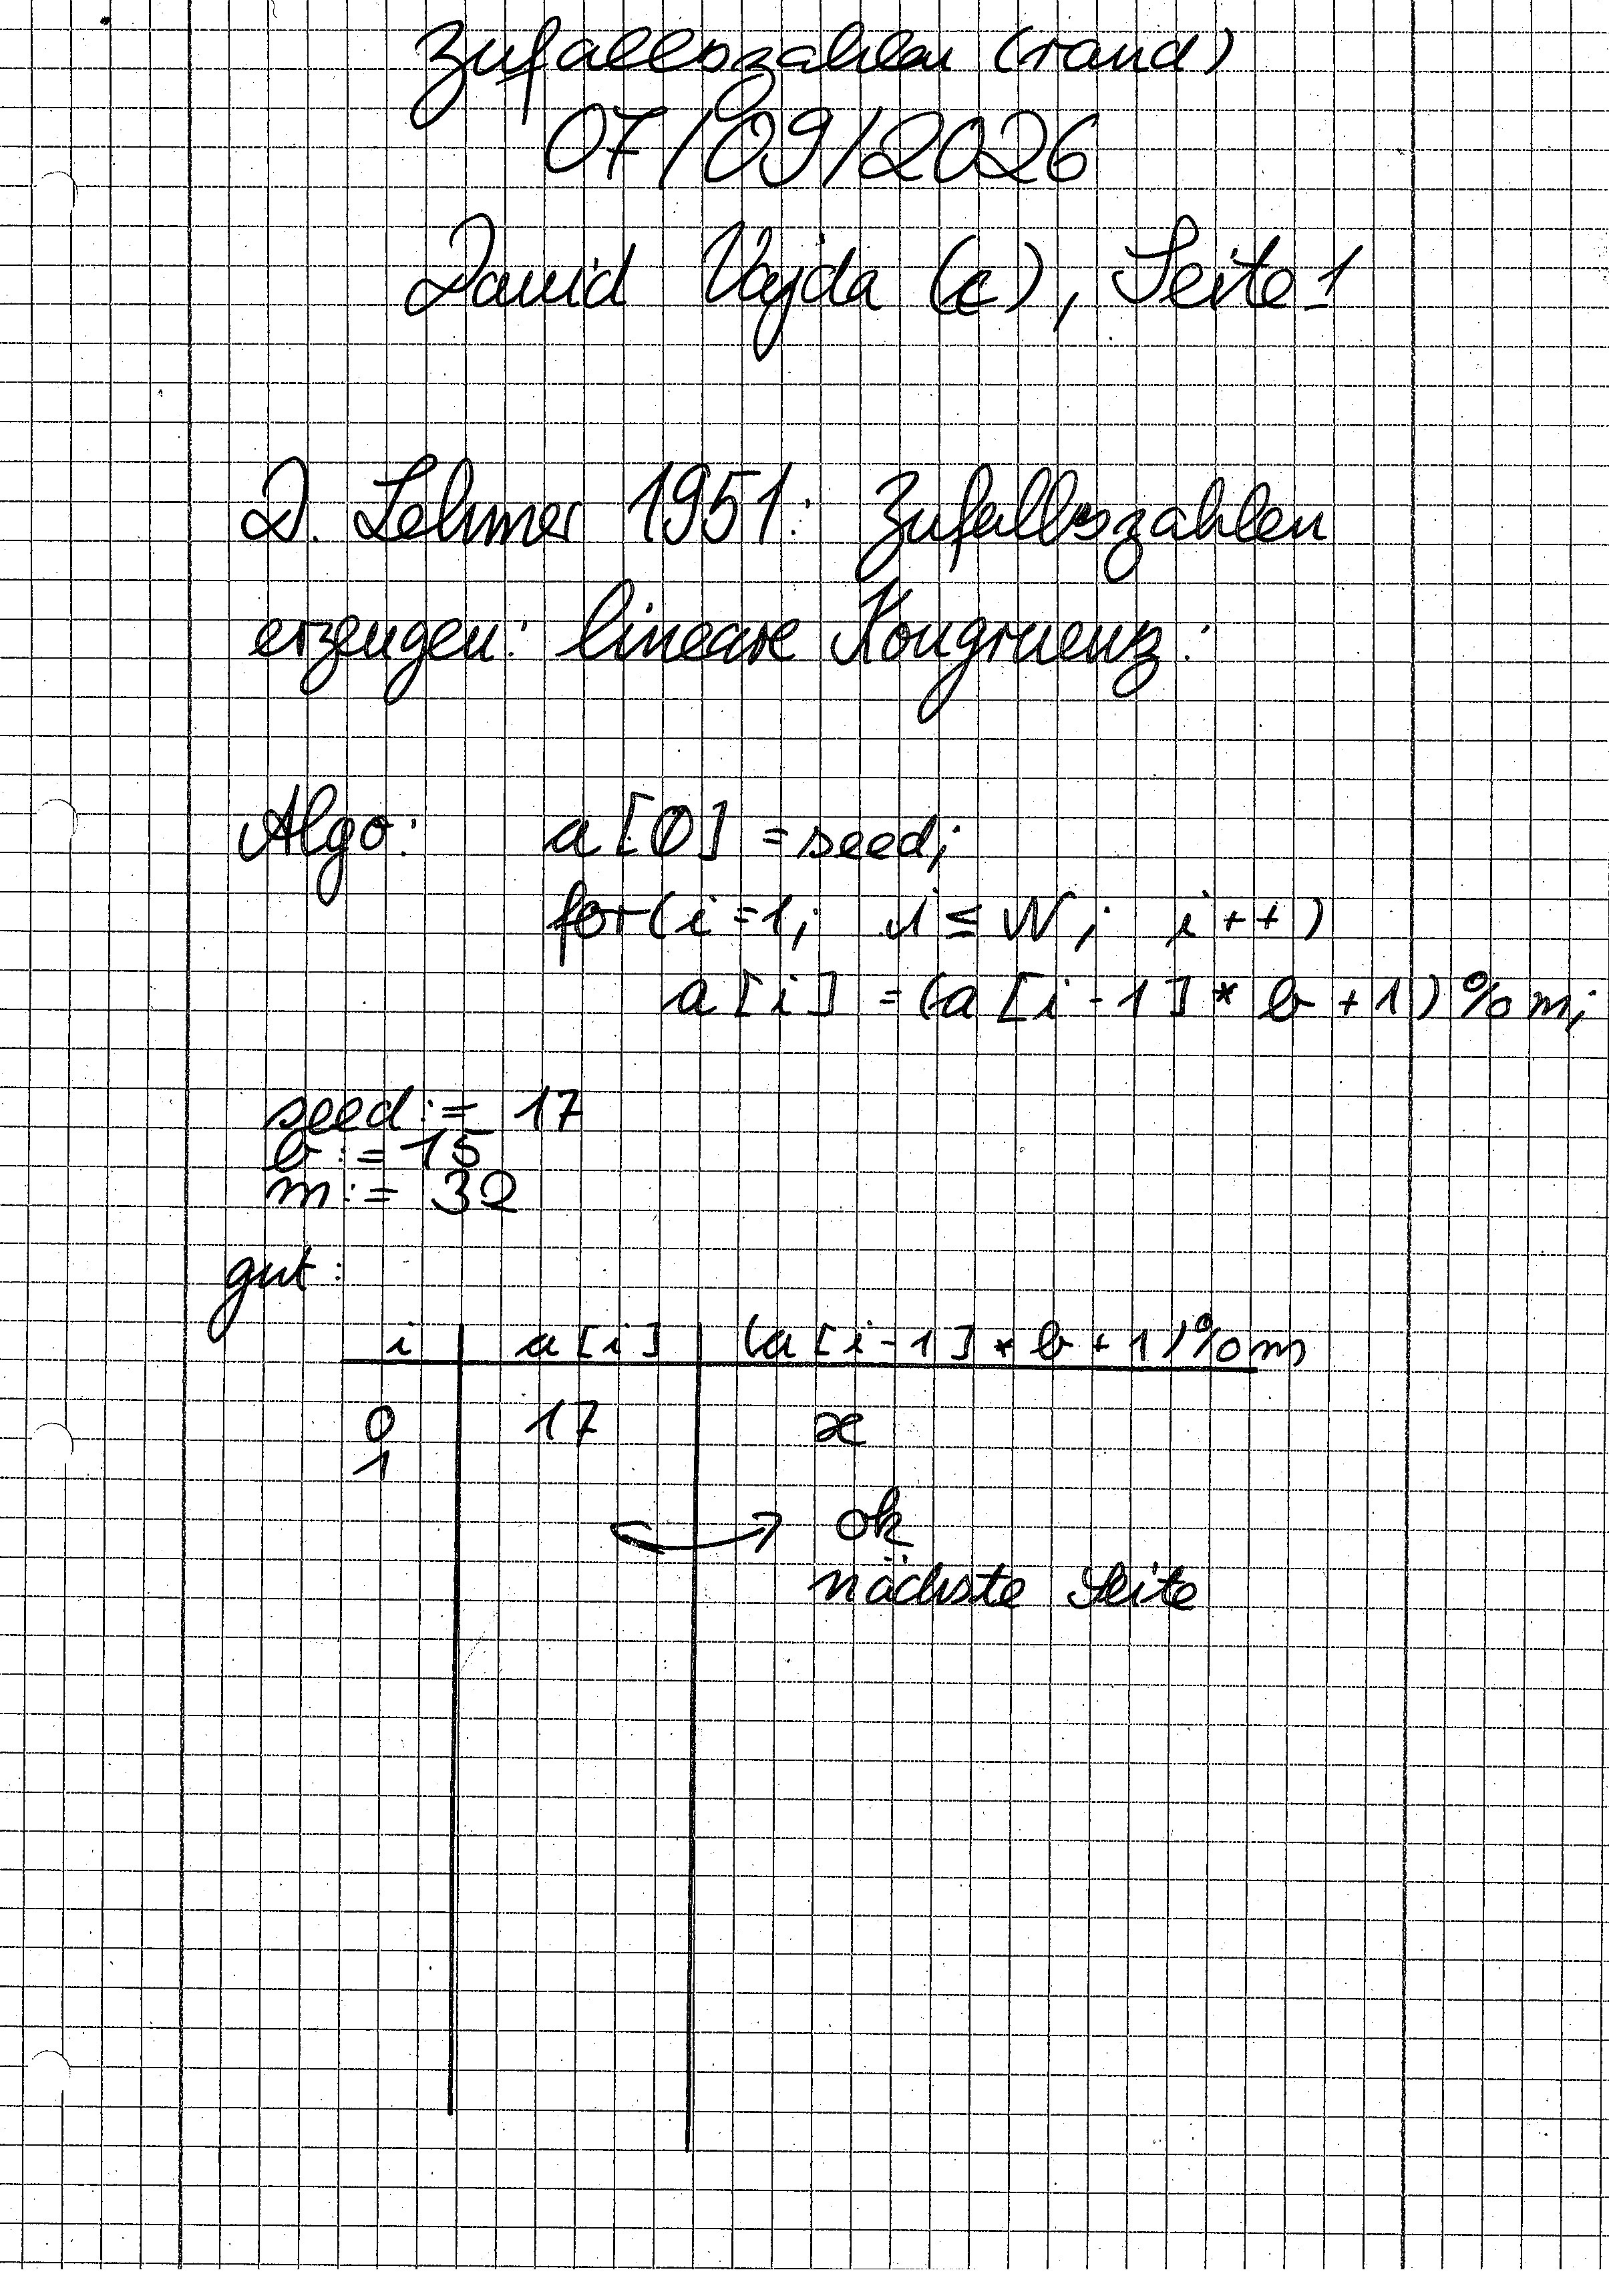 Zufallszahlen (rand)
07/09/2026
David Vajda (c), Seite 1
D. Lehmer 1951: Zufallszahlen
erzeugen: lineare Kongruenz:
Algo: a[0] = seed;
for(i=1; i ≤ N; i++)
a[i] = (a[i-1] * b + 1) % m;
seed := 17
b := 15
m := 32
gut:
i a[i] (a[i-1] * b + 1) % m
0 17 x
1
ok
nächste Seite